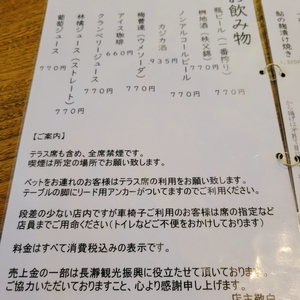 お飲み物
瓶ビール(一番搾り) 770円
桝地酒(秩父錦) 770円
ノンアルコールビール 770円
カジカ酒 935円
梅曹達(ウメソーダ) 770円
アイス珈琲 660円
クランベリージュース 770円
林檎ジュース(ストレート) 770円
葡萄ジュース 770円
鮎の麹漬け焼き
【ご案内】
テラス席も含め、全席禁煙です。
喫煙は所定の場所でお願い致します。
ペットをお連れのお客様はテラス席の利用をお願い致します。
テーブルの脚にリード用アンカーがついてますのでご利用ください。
段差の少ない店内ですが車椅子ご利用のお客様は席の指定など
店員までご用命ください(トイレなどご不便をおかけしております)
料金はすべて消費税込みの表示です。
売上金の一部は長瀞観光振興に役立たせて頂いております。
ご協力いただいておりますこと、心より感謝申し上げます。
店主敬白